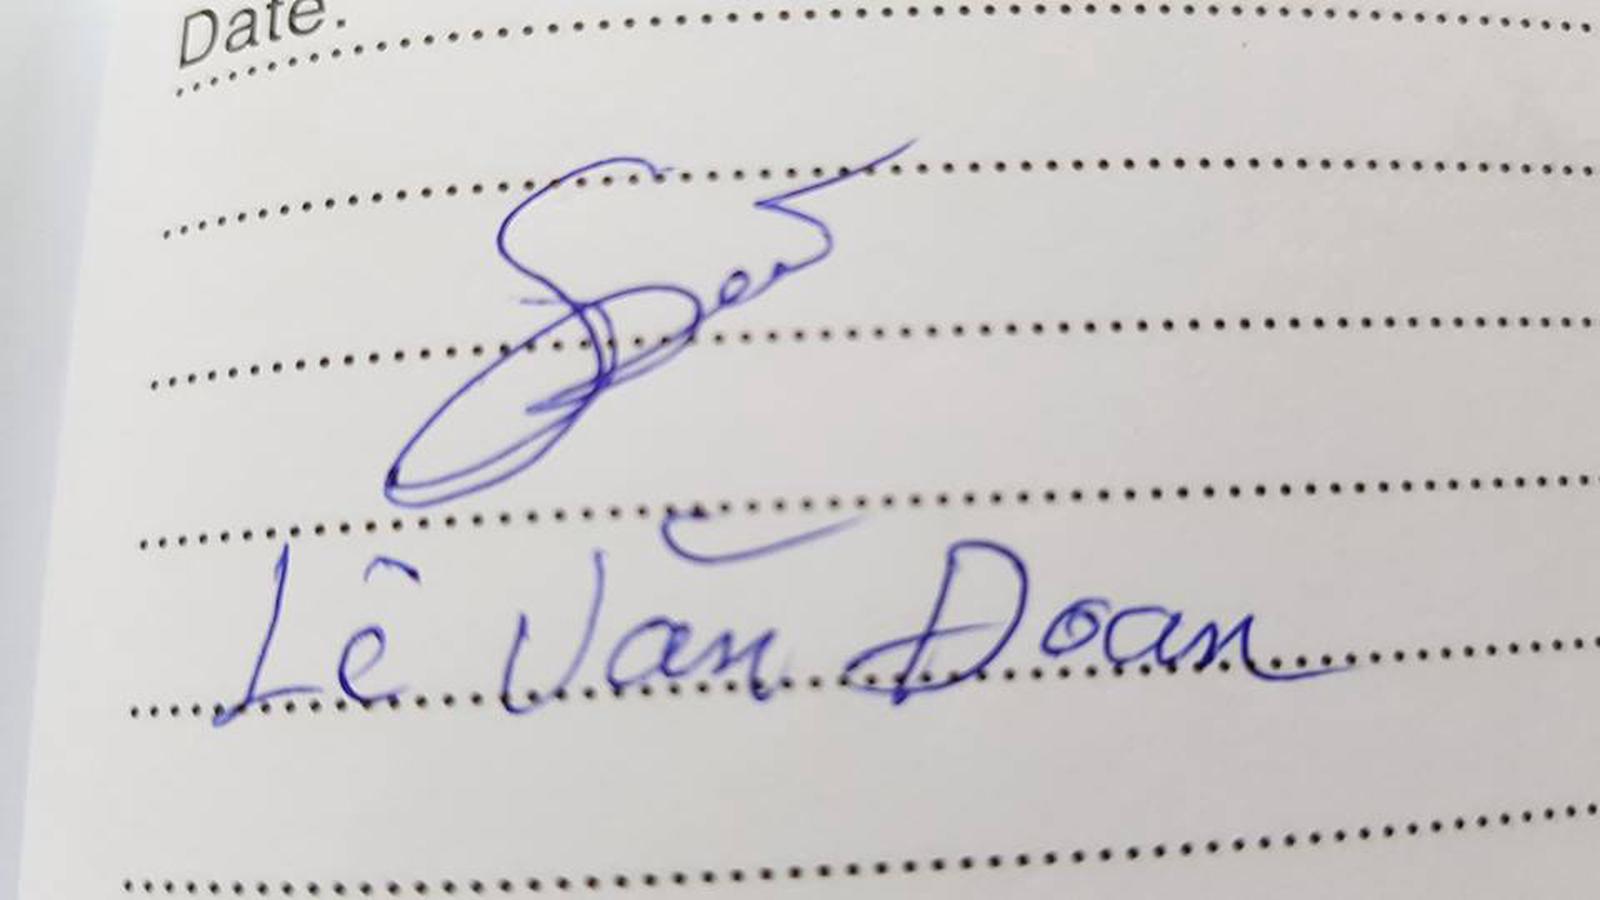 Date:
Lê Văn Đoan